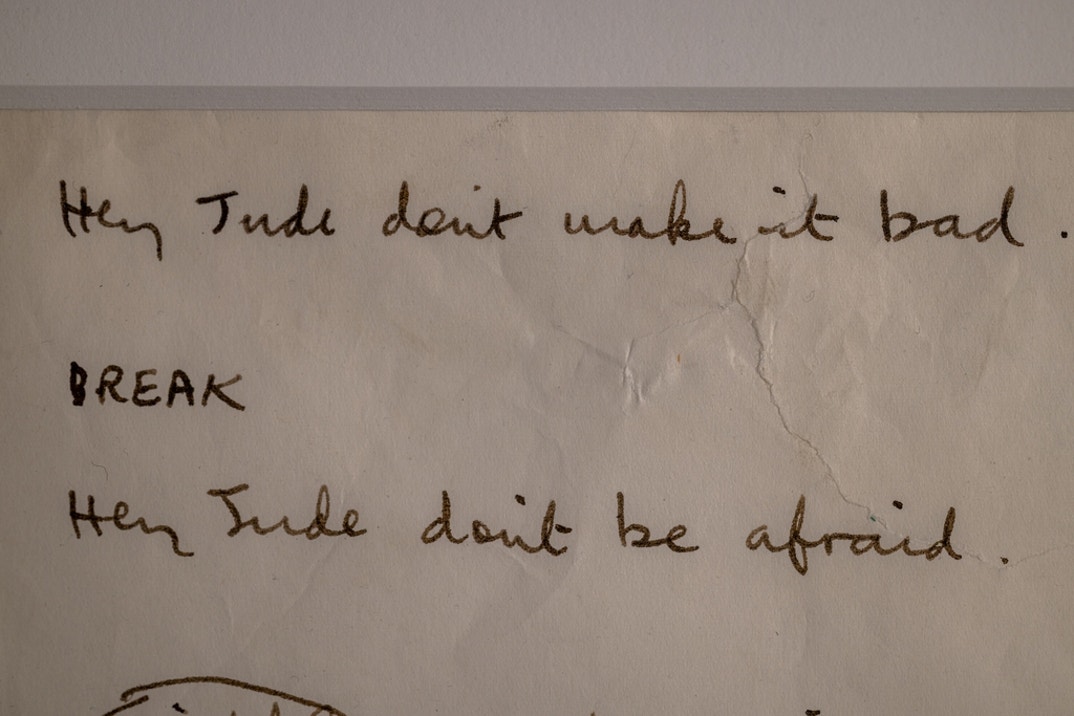 Hey Jude don't make it bad.
BREAK
Hey Jude don't be afraid.